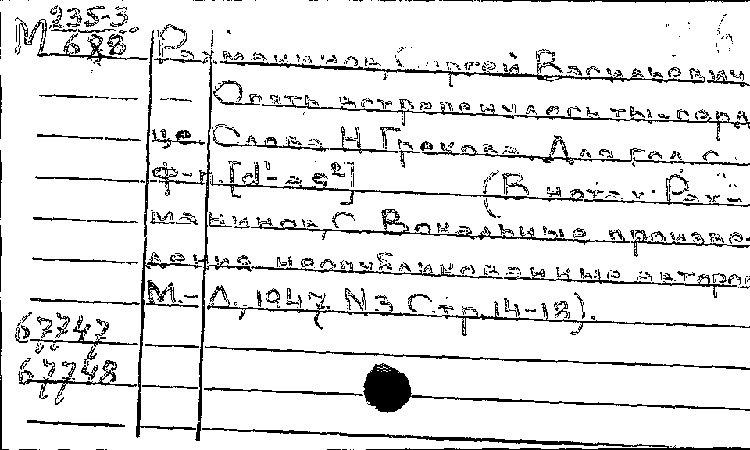 М 235-3
688
Рахманинов, Сергей Васильевич
Опять встрепенулось ты, серд
це. Слова Н Грекова. Для гол с
ф-п [d¹-as²] (В нотах: Рах-
манинов, С Вокальные произве-
дения неопубликованные автором
М.-Л., 1947 N 3 Стр. 14-18).
67747
67748